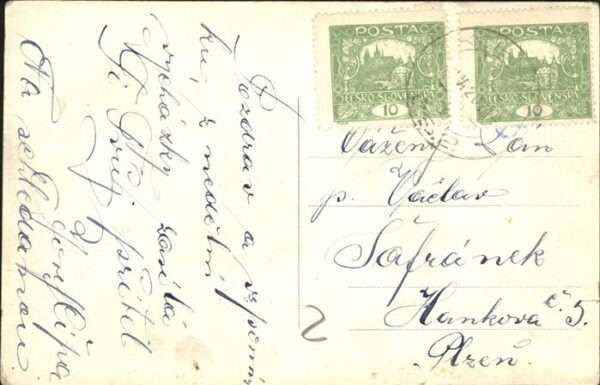 POSTA
ČESKO-SLOVENSKÁ
10
POSTA
ČESKO-SLOVENSKÁ
10
Pozdrav a vzpomín
ku z nedělní
vycházky zasílá
Ti Tvůj přítel
Josef Lípa
Na shledanou
Vážený Pán
p. Václav
Šafránek
Hankova č. 5.
Plzeň
2